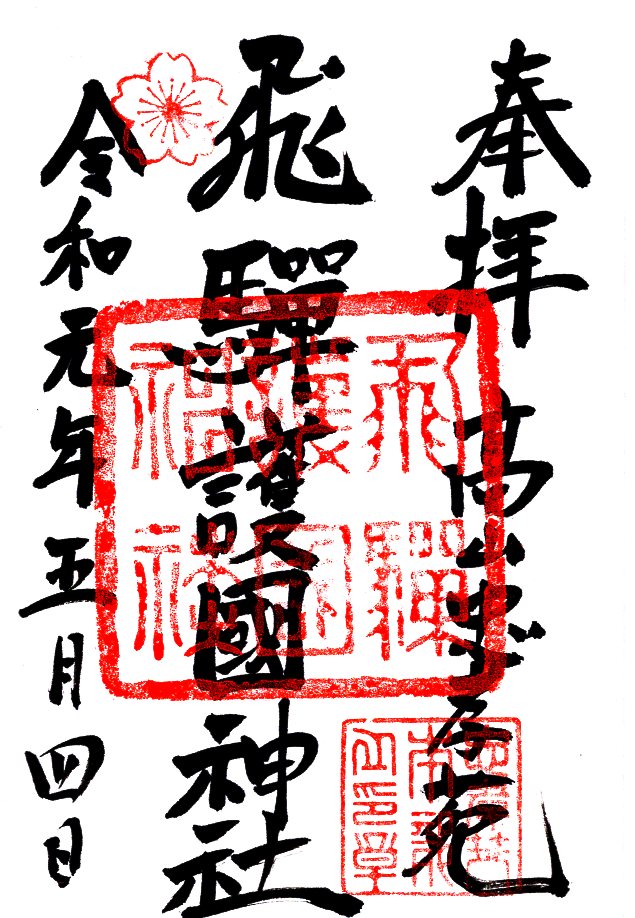 奉拝 高山
飛驒護國神社
令和元年五月四日
飛驒
護國
神社